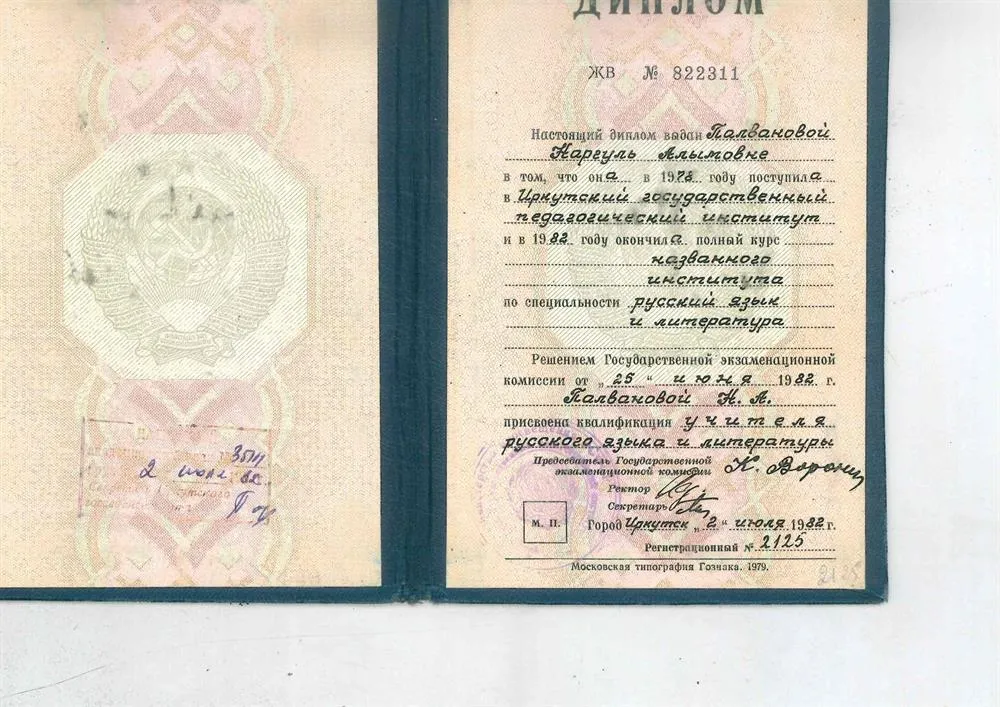 2 июля 82
ДИПЛОМ
ЖВ № 822311
Настоящий диплом выдан Палвановой
Наргуль Алымовне
в том, что она в 1978 году поступила
в Иркутский государственный
педагогический институт
и в 1982 году окончила полный курс
названного
института
по специальности русский язык
и литература
Решением Государственной экзаменационной
комиссии от „25“ июня 1982 г.
Палвановой Н. А.
присвоена квалификация учителя
русского языка и литературы
Председатель Государственной
экзаменационной комиссии
Ректор
Секретарь
М. П.
Город Иркутск „2“ июля 1982 г.
Регистрационный № 2125
Московская типография Гознака. 1979.
2125